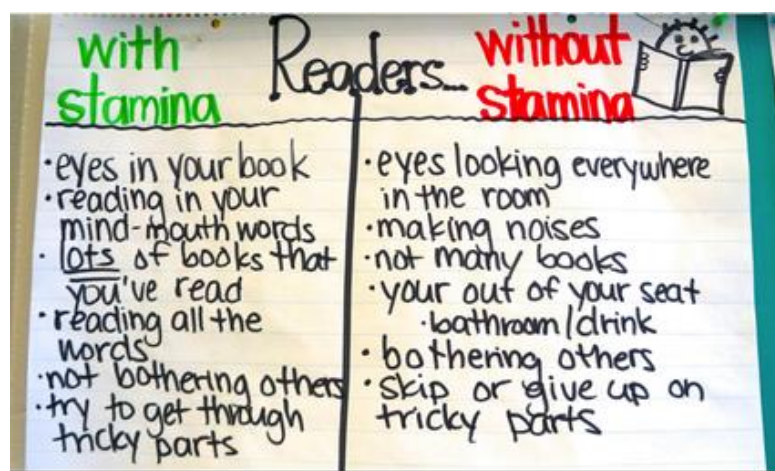 with
stamina
Readers...
without
stamina
· eyes in your book
· reading in your
mind-mouth words
· lots of books that
you've read
· reading all the
words
· not bothering others
· try to get through
tricky parts
· eyes looking everywhere
in the room
· making noises
· not many books
· your out of your seat
· bathroom/drink
· bothering others
· skip or give up on
tricky parts